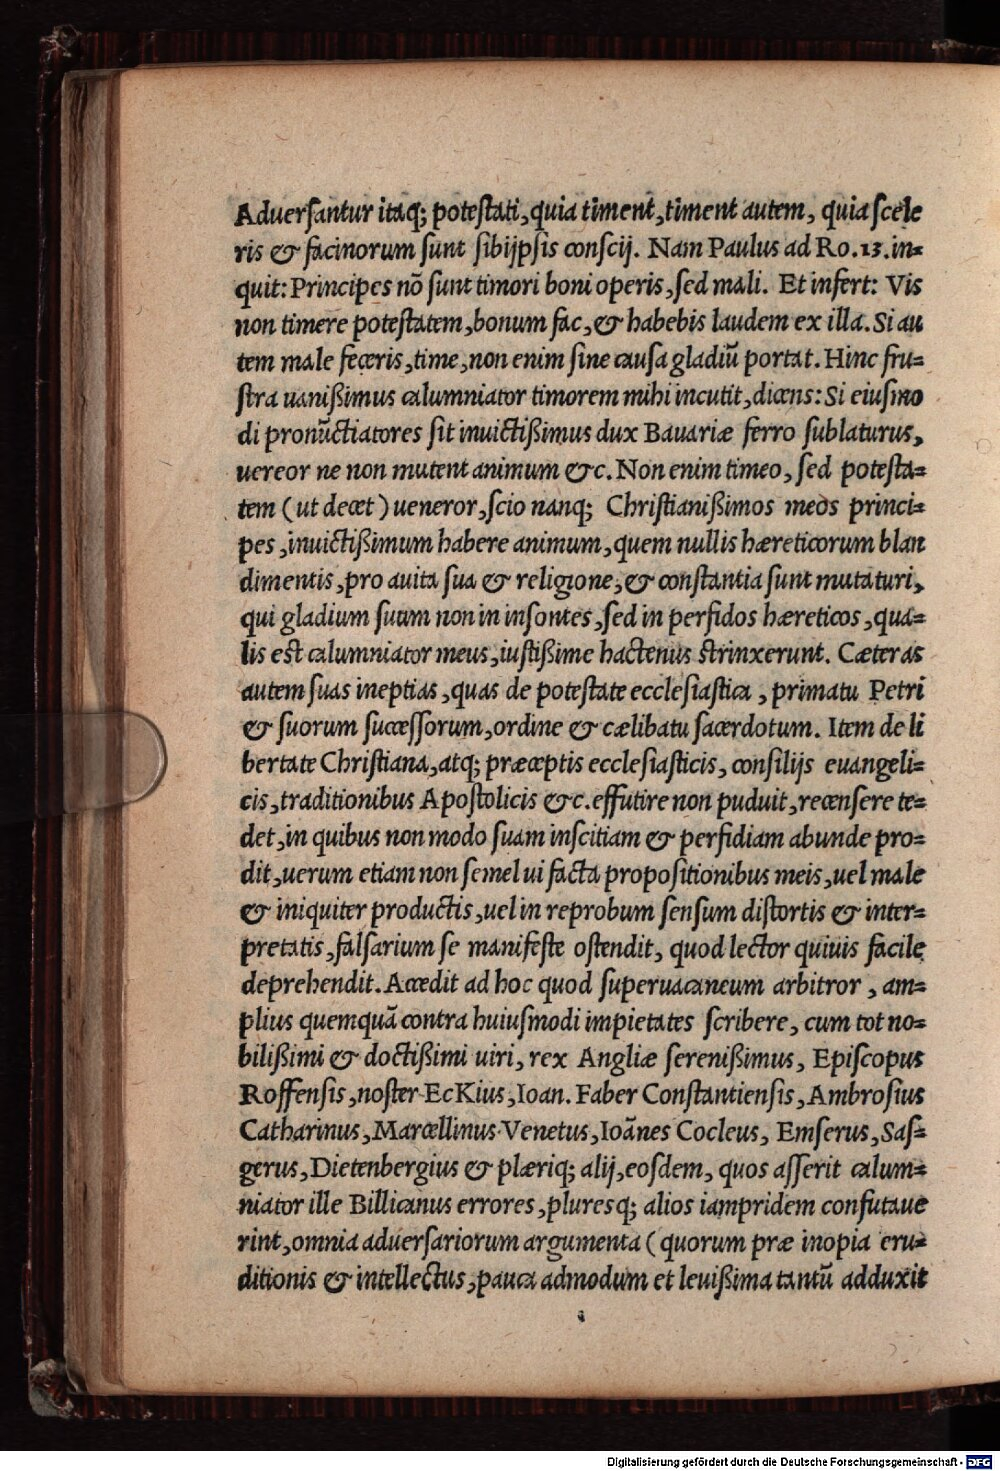 Aduerſantur itaq; poteſtati, quia timent, timent autem, quia ſcele
ris & facinorum ſunt ſibijpſis conſcij. Nam Paulus ad Ro. 13. in=
quit: Principes nō ſunt timori boni operis, ſed mali. Et infert: Vis
non timere poteſtatem, bonum fac, & habebis laudem ex illa. Si au
tem male feceris, time, non enim ſine cauſa gladiū portat. Hinc fru=
ſtra uanißimus calumniator timorem mihi incutit, dicens: Si eiuſmo
di pronūctiatores ſit inuictißimus dux Bauariæ ferro ſublaturus,
uereor ne non mutent animum &c. Non enim timeo, ſed poteſta=
tem (ut decet) ueneror, ſcio nanq; Chriſtianißimos meos princi=
pes, inuictißimum habere animum, quem nullis hæreticorum blan
dimentis, pro auita ſua & religione, & conſtantia ſunt mutaturi,
qui gladium ſuum non in inſontes, ſed in perfidos hæreticos, qua=
lis est calumniator meus, iuſtißime hactenus strinxerunt. Cæteras
autem ſuas ineptias, quas de poteſtate eccleſiaſtica, primatu Petri
& ſuorum ſucceſſorum, ordine & cælibatu ſacerdotum. Item de li
bertate Chriſtiana, atq; præceptis eccleſiaſticis, conſilijs euangeli=
cis, traditionibus Apoſtolicis &c. effutire non puduit, recenſere te=
det, in quibus non modo ſuam inſcitiam & perfidiam abunde pro=
dit, uerum etiam non ſemel ui facta propoſitionibus meis, uel male
& iniquiter productis, uel in reprobum ſenſum diſtortis & inter=
pretatis, falſarium ſe manifeſte oſtendit, quod lector quiuis facile
deprehendit. Accedit ad hoc quod ſuperuacaneum arbitror, am=
plius quemquā contra huiuſmodi impietates ſcribere, cum tot no=
bilißimi & doctißimi uiri, rex Angliæ ſerenißimus, Epiſcopus
Roffenſis, noſter EcKius, Ioan. Faber Conſtantienſis, Ambroſius
Catharinus, Marcellinus Venetus, Ioānes Cocleus, Emſerus, Saſ=
gerus, Dietenbergius & plæriq; alij, eoſdem, quos aſſerit calum=
niator ille Billicanus errores, pluresq; alios iampridem confutaue
rint, omnia aduerſariorum argumenta (quorum præ inopia eru=
ditionis & intellectus, pauca admodum et leuißima tantū adduxit
Digitalisierung gefördert durch die Deutsche Forschungsgemeinschaft - DFG